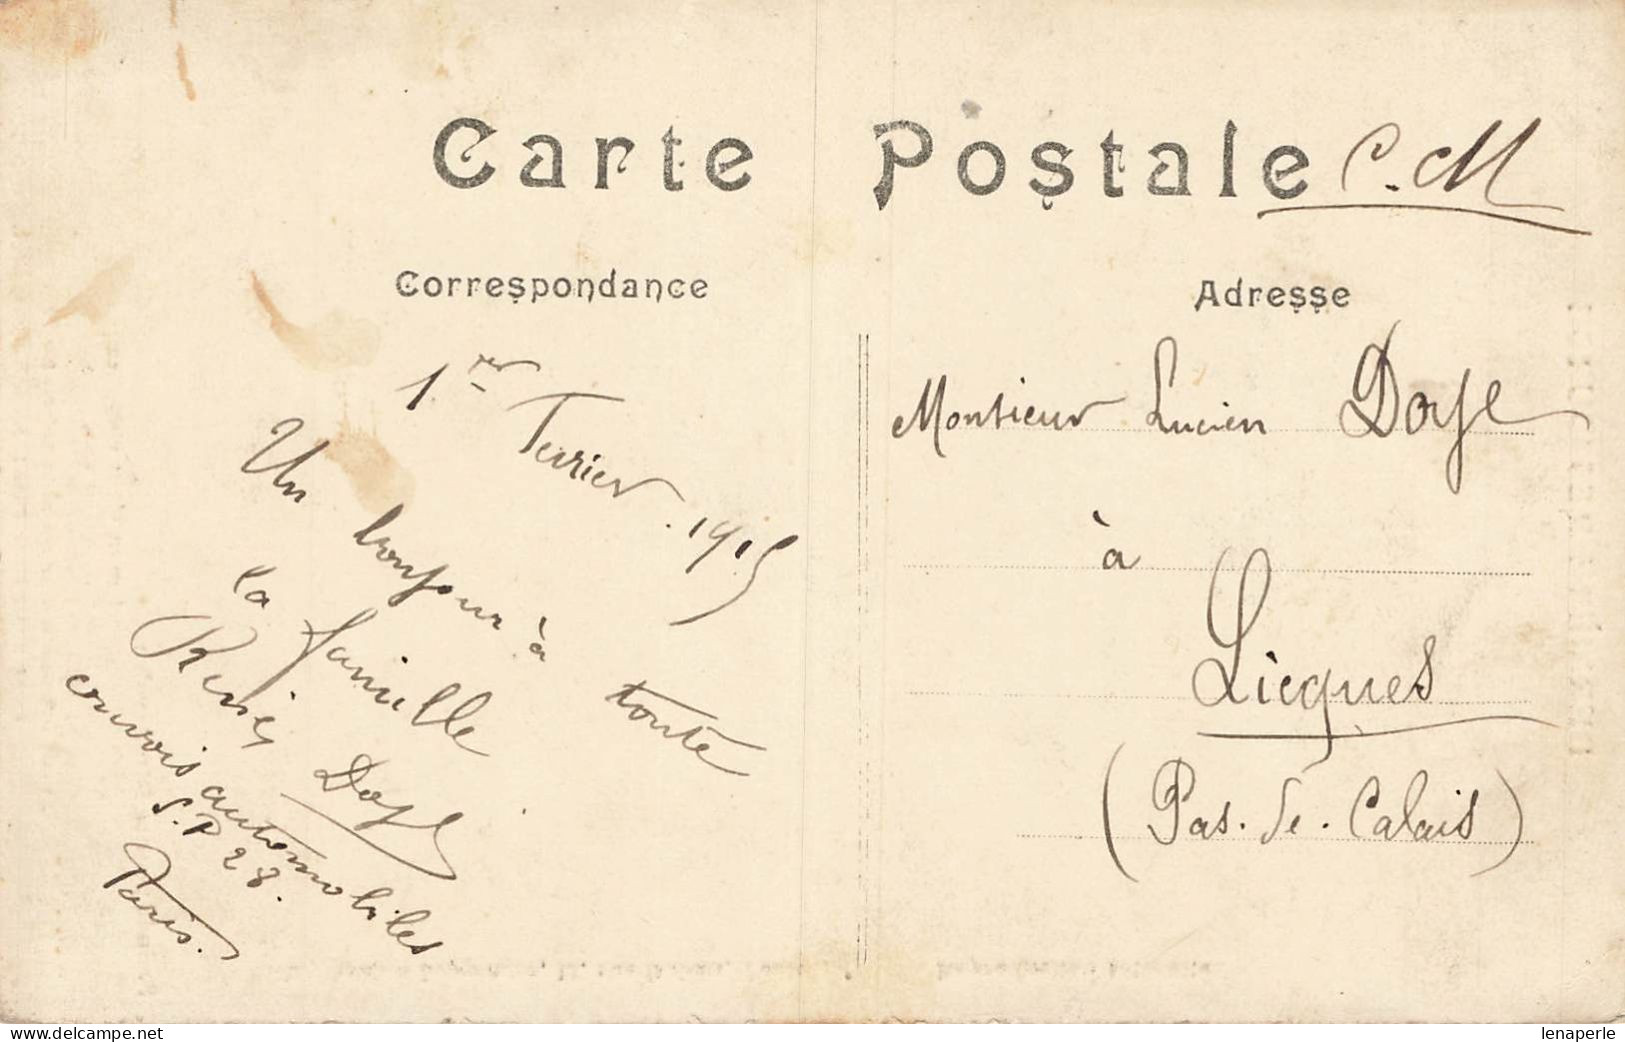 Carte Postale C.M
Correspondance
1er Fevrier 1915
Un bonjour à toute
la famille
René Doye
convois automobiles
S.P 28.
Paris.
Adresse
Monsieur Lucien Doye
à
Licques
(Pas-de-Calais)
www.delcampe.net
lenaperle